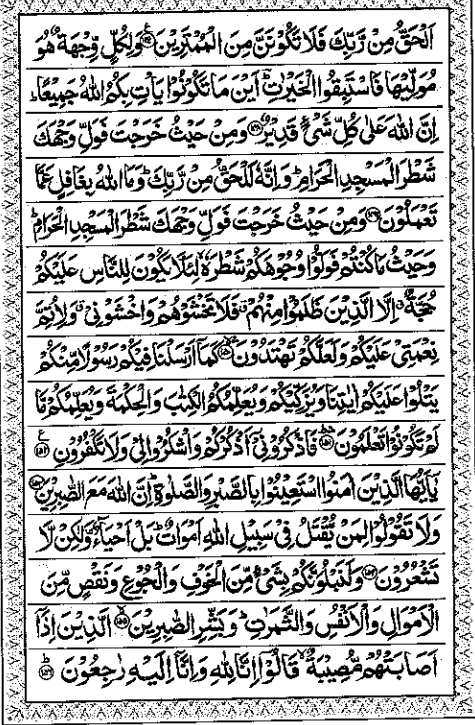 اَلْحَقُّ مِنْ رَّبِّكَ فَلَا تَكُوْنَنَّ مِنَ الْمُمْتَرِيْنَ ۝۱۴۷ وَلِكُلٍّ وِّجْهَةٌ هُوَ
مُوَلِّيْهَا فَاسْتَبِقُوا الْخَيْرٰتِ ؕ اَيْنَ مَا تَكُوْنُوْا يَاْتِ بِكُمُ اللّٰهُ جَمِيْعًا ؕ
اِنَّ اللّٰهَ عَلٰى كُلِّ شَيْءٍ قَدِيْرٌ ۝۱۴۸ وَمِنْ حَيْثُ خَرَجْتَ فَوَلِّ وَجْهَكَ
شَطْرَ الْمَسْجِدِ الْحَرَامِ ؕ وَاِنَّهٗ لَلْحَقُّ مِنْ رَّبِّكَ ؕ وَمَا اللّٰهُ بِغَافِلٍ عَمَّا
تَعْمَلُوْنَ ۝۱۴۹ وَمِنْ حَيْثُ خَرَجْتَ فَوَلِّ وَجْهَكَ شَطْرَ الْمَسْجِدِ الْحَرَامِ ؕ
وَحَيْثُ مَا كُنْتُمْ فَوَلُّوْا وُجُوْهَكُمْ شَطْرَهٗ ۙ لِئَلَّا يَكُوْنَ لِلنَّاسِ عَلَيْكُمْ
حُجَّةٌ ۙ اِلَّا الَّذِيْنَ ظَلَمُوْا مِنْهُمْ ۗ فَلَا تَخْشَوْهُمْ وَاخْشَوْنِيْ ۗ وَلِاُتِمَّ
نِعْمَتِيْ عَلَيْكُمْ وَلَعَلَّكُمْ تَهْتَدُوْنَ ۝۱۵۰ كَمَآ اَرْسَلْنَا فِيْكُمْ رَسُوْلًا مِّنْكُمْ
يَتْلُوْا عَلَيْكُمْ اٰيٰتِنَا وَيُزَكِّيْكُمْ وَيُعَلِّمُكُمُ الْكِتٰبَ وَالْحِكْمَةَ وَيُعَلِّمُكُمْ مَّا
لَمْ تَكُوْنُوْا تَعْلَمُوْنَ ۝۱۵۱ فَاذْكُرُوْنِيْٓ اَذْكُرْكُمْ وَاشْكُرُوْا لِيْ وَلَا تَكْفُرُوْنِ ۝۱۵۲
يٰٓاَيُّهَا الَّذِيْنَ اٰمَنُوا اسْتَعِيْنُوْا بِالصَّبْرِ وَالصَّلٰوةِ ؕ اِنَّ اللّٰهَ مَعَ الصّٰبِرِيْنَ ۝۱۵۳
وَلَا تَقُوْلُوْا لِمَنْ يُّقْتَلُ فِيْ سَبِيْلِ اللّٰهِ اَمْوَاتٌ ؕ بَلْ اَحْيَآءٌ وَّلٰكِنْ لَّا
تَشْعُرُوْنَ ۝۱۵۴ وَلَنَبْلُوَنَّكُمْ بِشَيْءٍ مِّنَ الْخَوْفِ وَالْجُوْعِ وَنَقْصٍ مِّنَ
الْاَمْوَالِ وَالْاَنْفُسِ وَالثَّمَرٰتِ ؕ وَبَشِّرِ الصّٰبِرِيْنَ ۝۱۵۵ الَّذِيْنَ اِذَآ
اَصَابَتْهُمْ مُّصِيْبَةٌ ۙ قَالُوْٓا اِنَّا لِلّٰهِ وَاِنَّآ اِلَيْهِ رٰجِعُوْنَ ۝۱۵۶